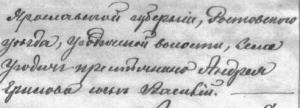 Ярославской губерніи, Ростовского
уѣзда, Угодичской волости, Села
Угодич крестьянина Андрея
сынъ Василій.